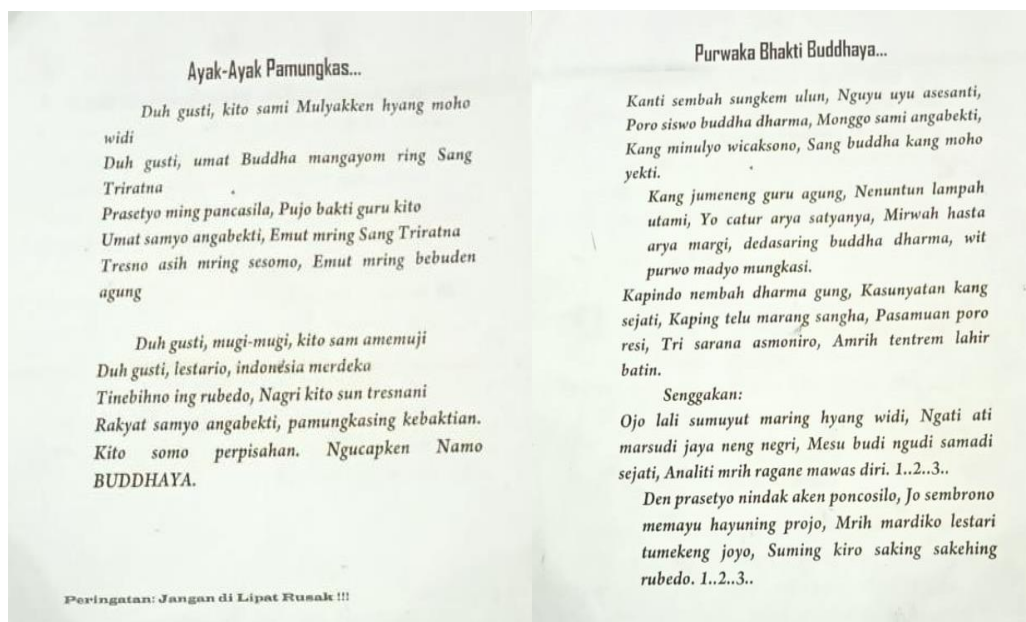 Ayak-Ayak Pamungkas...
Duh gusti, kito sami Mulyakken hyang moho
widi
Duh gusti, umat Buddha mangayom ring Sang
Triratna
Prasetyo ming pancasila, Pujo bakti guru kito
Umat samyo angabekti, Emut mring Sang Triratna
Tresno asih mring sesomo, Emut mring bebuden
agung
Duh gusti, mugi-mugi, kito sam amemuji
Duh gusti, lestario, indonesia merdeka
Tinebihno ing rubedo, Nagri kito sun tresnani
Rakyat samyo angabekti, pamungkasing kebaktian.
Kito somo perpisahan. Ngucapken Namo
BUDDHAYA.
Peringatan: Jangan di Lipat Rusak !!!
Purwaka Bhakti Buddhaya...
Kanti sembah sungkem ulun, Nguyu uyu asesanti,
Poro siswo buddha dharma, Monggo sami angabekti,
Kang minulyo wicaksono, Sang buddha kang moho
yekti.
Kang jumeneng guru agung, Nenuntun lampah
utami, Yo catur arya satyanya, Mirwah hasta
arya margi, dedasaring buddha dharma, wit
purwo madyo mungkasi.
Kapindo nembah dharma gung, Kasunyatan kang
sejati, Kaping telu marang sangha, Pasamuan poro
resi, Tri sarana asmoniro, Amrih tentrem lahir
batin.
Senggakan:
Ojo lali sumuyut maring hyang widi, Ngati ati
marsudi jaya neng negri, Mesu budi ngudi samadi
sejati, Analiti mrih ragane mawas diri. 1..2..3..
Den prasetyo nindak aken poncosilo, Jo sembrono
memayu hayuning projo, Mrih mardiko lestari
tumekeng joyo, Suming kiro saking sakehing
rubedo. 1..2..3..